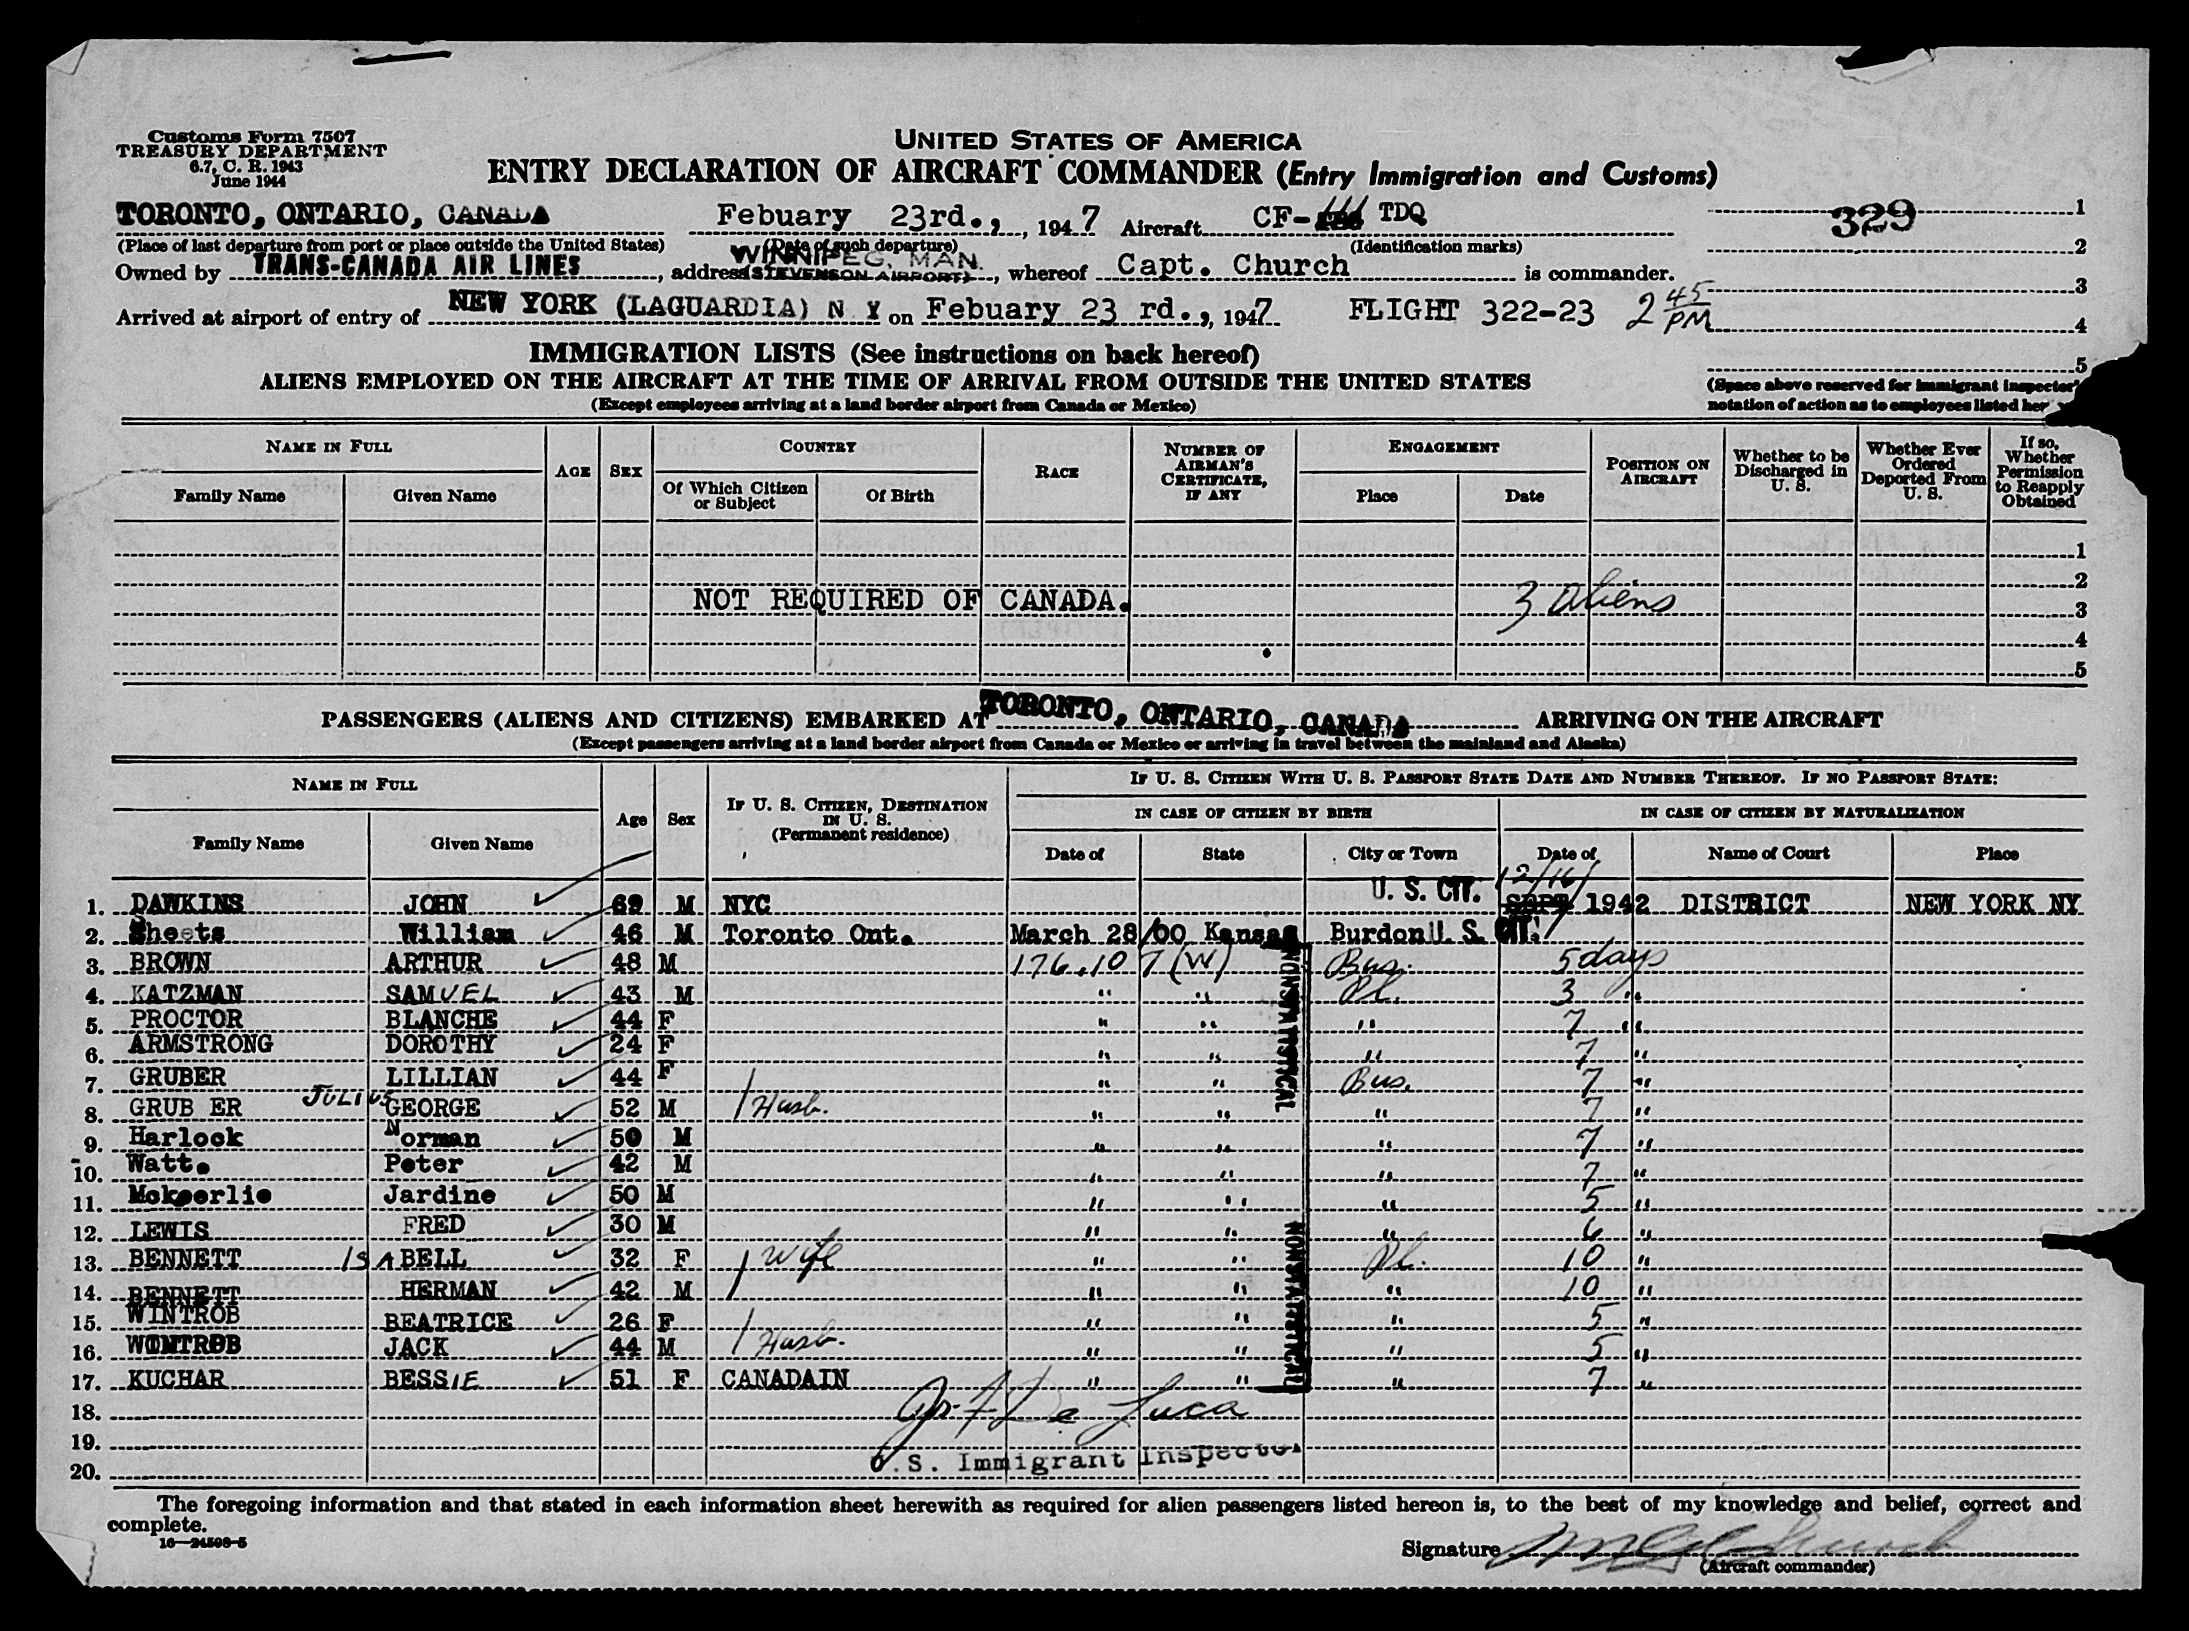 Customs Form 7507
TREASURY DEPARTMENT
6.7, C. R. 1943
June 1944
UNITED STATES OF AMERICA
ENTRY DECLARATION OF AIRCRAFT COMMANDER (Entry Immigration and Customs)
TORONTO, ONTARIO, CANADA Febuary 23rd., , 1947 Aircraft CF- TDQ 329 1
(Place of last departure from port or place outside the United States) (Date of such departure) (Identification marks) 2
Owned by TRANS-CANADA AIR LINES, address WINNIPEG, MAN. (STEVENSON AIRPORT), whereof Capt. Church is commander.
3
Arrived at airport of entry of NEW YORK (LAGUARDIA) N Y on Febuary 23 rd., , 1947 FLIGHT 322-23 2 45 PM 4
IMMIGRATION LISTS (See instructions on back hereof) 5
ALIENS EMPLOYED ON THE AIRCRAFT AT THE TIME OF ARRIVAL FROM OUTSIDE THE UNITED STATES
(Except employees arriving at a land border airport from Canada or Mexico)
(Space above reserved for immigrant inspector'
notation of action as to employees listed her
NAME IN FULL AGE SEX COUNTRY RACE NUMBER OF AIRMAN'S CERTIFICATE, IF ANY ENGAGEMENT POSITION ON AIRCRAFT Whether to be Discharged in U. S. Whether Ever Ordered Deported From U. S. If so, Whether Permission to Reapply Obtained
Family Name Given Name Of Which Citizen or Subject Of Birth Place Date
1
2
NOT REQUIRED OF CANADA. 3 aliens 3
4
5
PASSENGERS (ALIENS AND CITIZENS) EMBARKED AT TORONTO, ONTARIO, CANADA ARRIVING ON THE AIRCRAFT
(Except passengers arriving at a land border airport from Canada or Mexico or arriving in travel between the mainland and Alaska)
NAME IN FULL Age Sex IF U. S. CITIZEN, DESTINATION IN U. S. (Permanent residence) IF U. S. CITIZEN WITH U. S. PASSPORT STATE DATE AND NUMBER THEREOF. IF NO PASSPORT STATE:
IN CASE OF CITIZEN BY BIRTH IN CASE OF CITIZEN BY NATURALIZATION
Family Name Given Name Date of State City or Town Date of Name of Court Place
1. DAWKINS JOHN 69 M NYC U. S. CIT. 12/16/ SEPT 1942 DISTRICT NEW YORK NY
2. Sheets William 46 M Toronto Ont. March 28/00 Kansas Burdon U. S. CIT.
3. BROWN ARTHUR 48 M 176.107(W) Bus. 5 days
4. KATZMAN SAMUEL 43 M " " Pl. 3 "
5. PROCTOR BLANCHE 44 F " " " 7 "
6. ARMSTRONG DOROTHY 24 F " " " 7 "
7. GRUBER LILLIAN 44 F " " Bus. 7 "
8. GRUB ER JULIUS GEORGE 52 M Husb. " " " 7 "
9. Harlock Norman 50 M " " " 7 "
10. Watt. Peter 42 M " " " 7 "
11. Mckoerlie Jardine 50 M " " " 5 "
12. LEWIS FRED 30 M " " " 6 "
13. BENNETT ISABELL 32 F wife " " Pl. 10 "
14. BENNETT HERMAN 42 M " " " 10 "
15. WINTROB BEATRICE 26 F " " " 5 "
16. WINTROB JACK 44 M Husb. " " " 5 "
17. KUCHAR BESSIE 51 F CANADAIN " " " 7 "
NONSTATISTICAL
NONSTATISTICAL
18.
De Luca
19.
U.S. Immigrant Inspector
20.
The foregoing information and that stated in each information sheet herewith as required for alien passengers listed hereon is, to the best of my knowledge and belief, correct and
complete.
16—24598-5
Signature Church
(Aircraft commander)